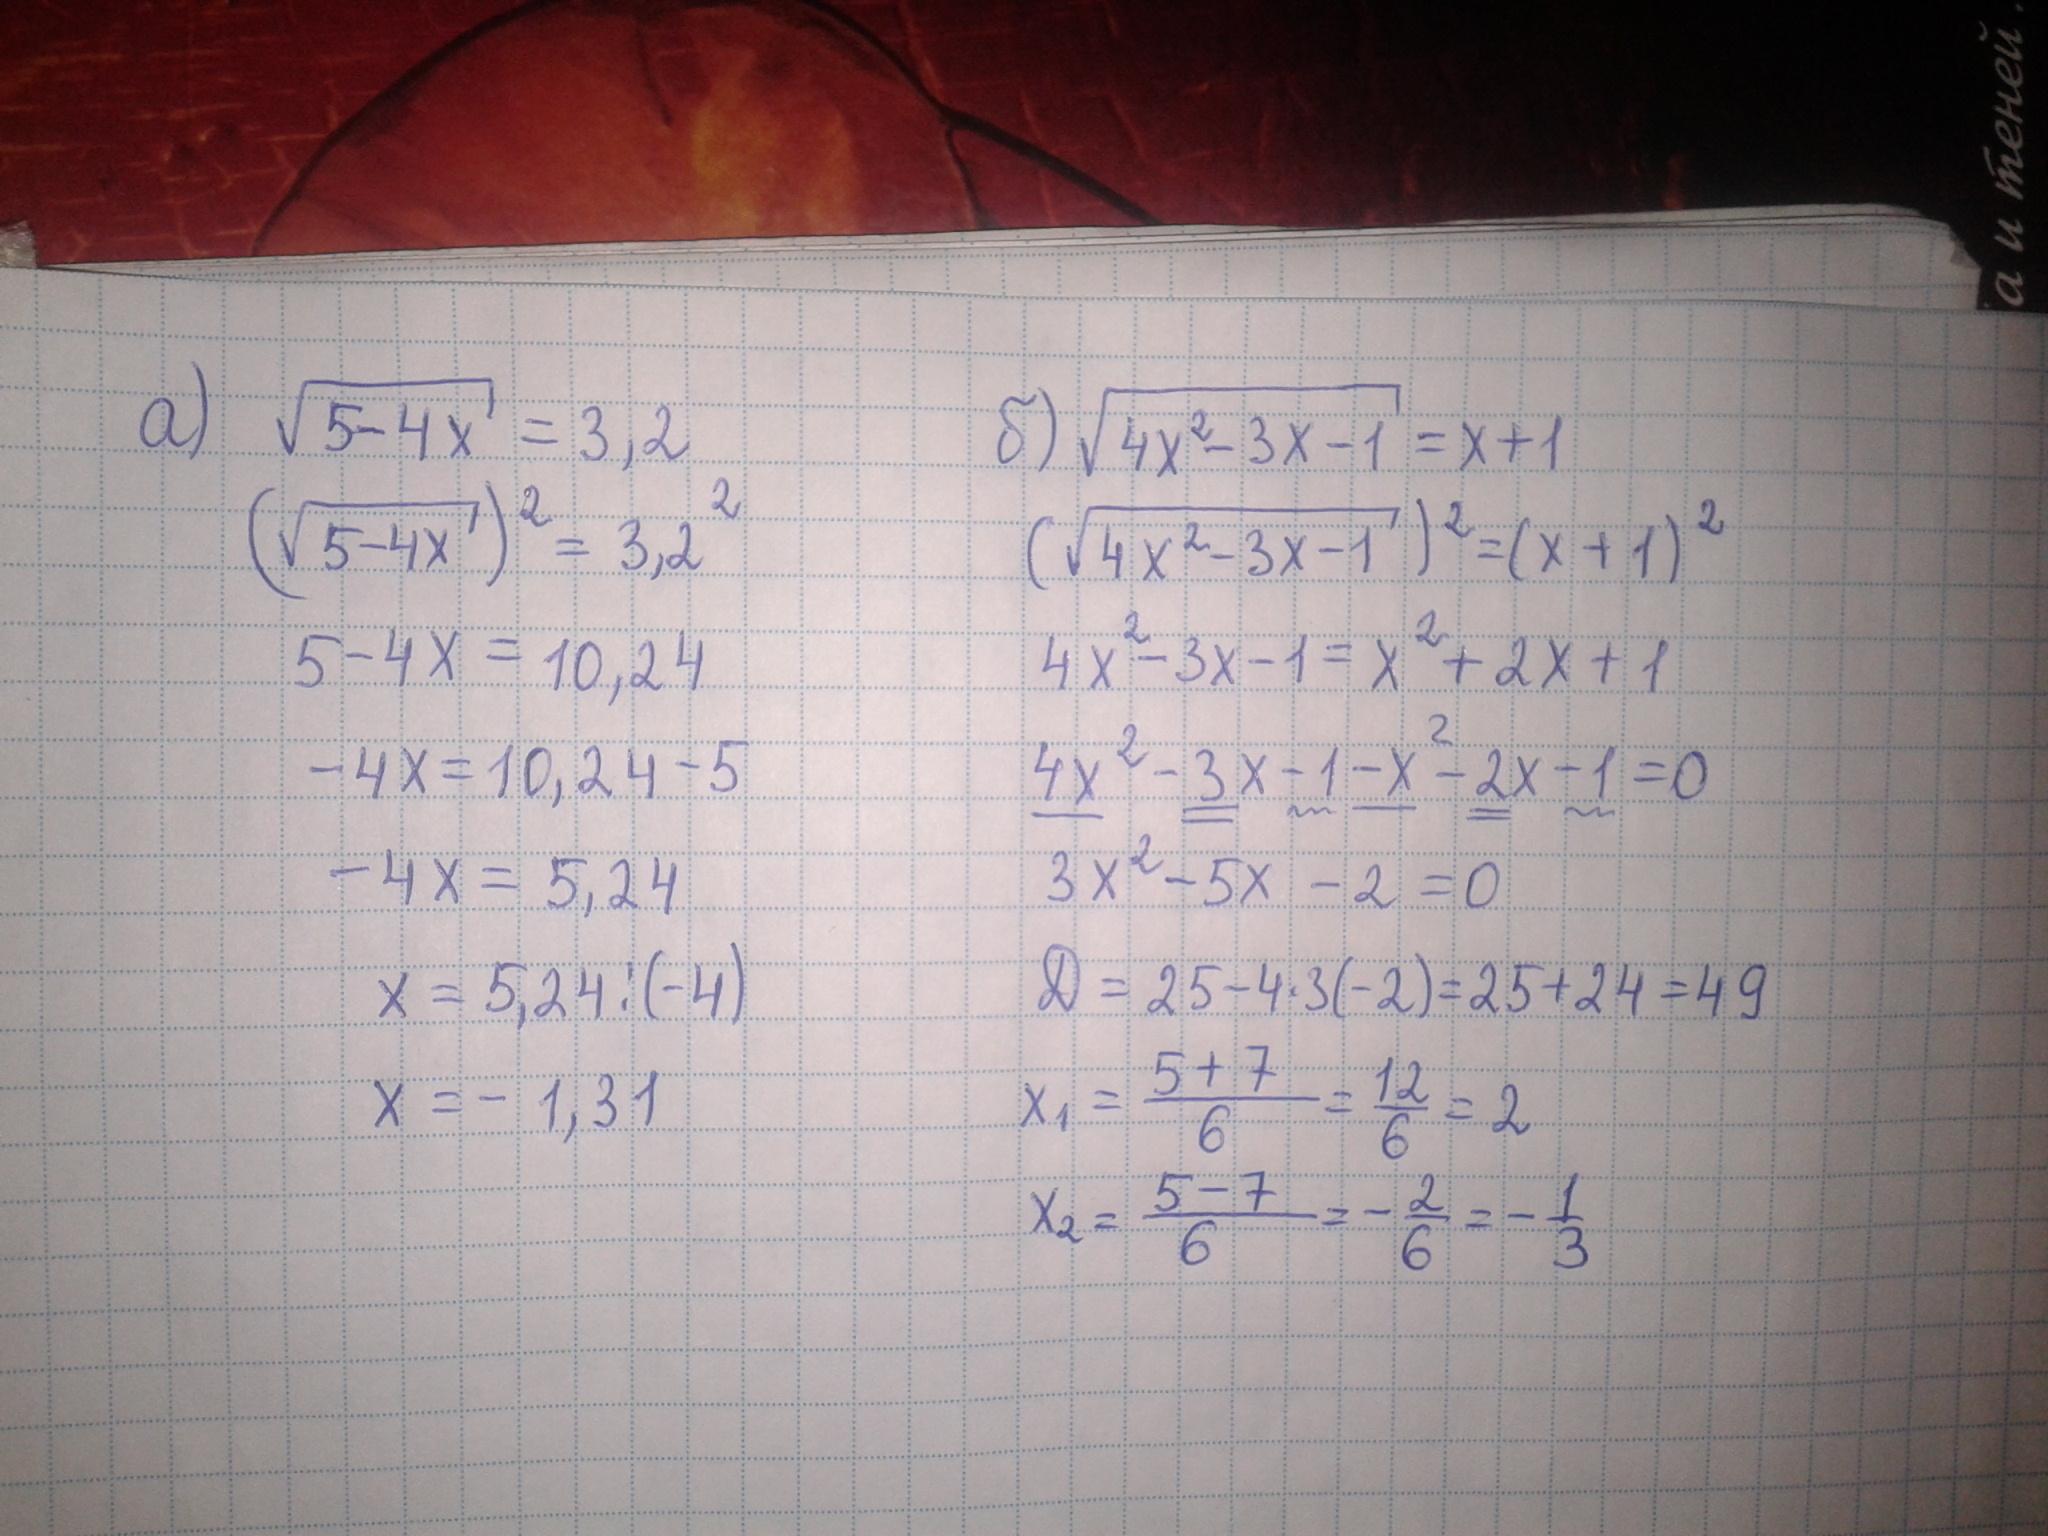 а и теней.
а) √(5-4x) = 3,2
(√(5-4x))² = 3,2²
5-4x = 10,24
-4x = 10,24-5
-4x = 5,24
x = 5,24:(-4)
x = -1,31
б) √(4x²-3x-1) = x+1
(√(4x²-3x-1))² = (x+1)²
4x²-3x-1 = x²+2x+1
4x²-3x-1-x²-2x-1 = 0
3x²-5x-2 = 0
D = 25-4·3(-2) = 25+24 = 49
x₁ = (5+7)/6 = 12/6 = 2
x₂ = (5-7)/6 = -2/6 = -1/3